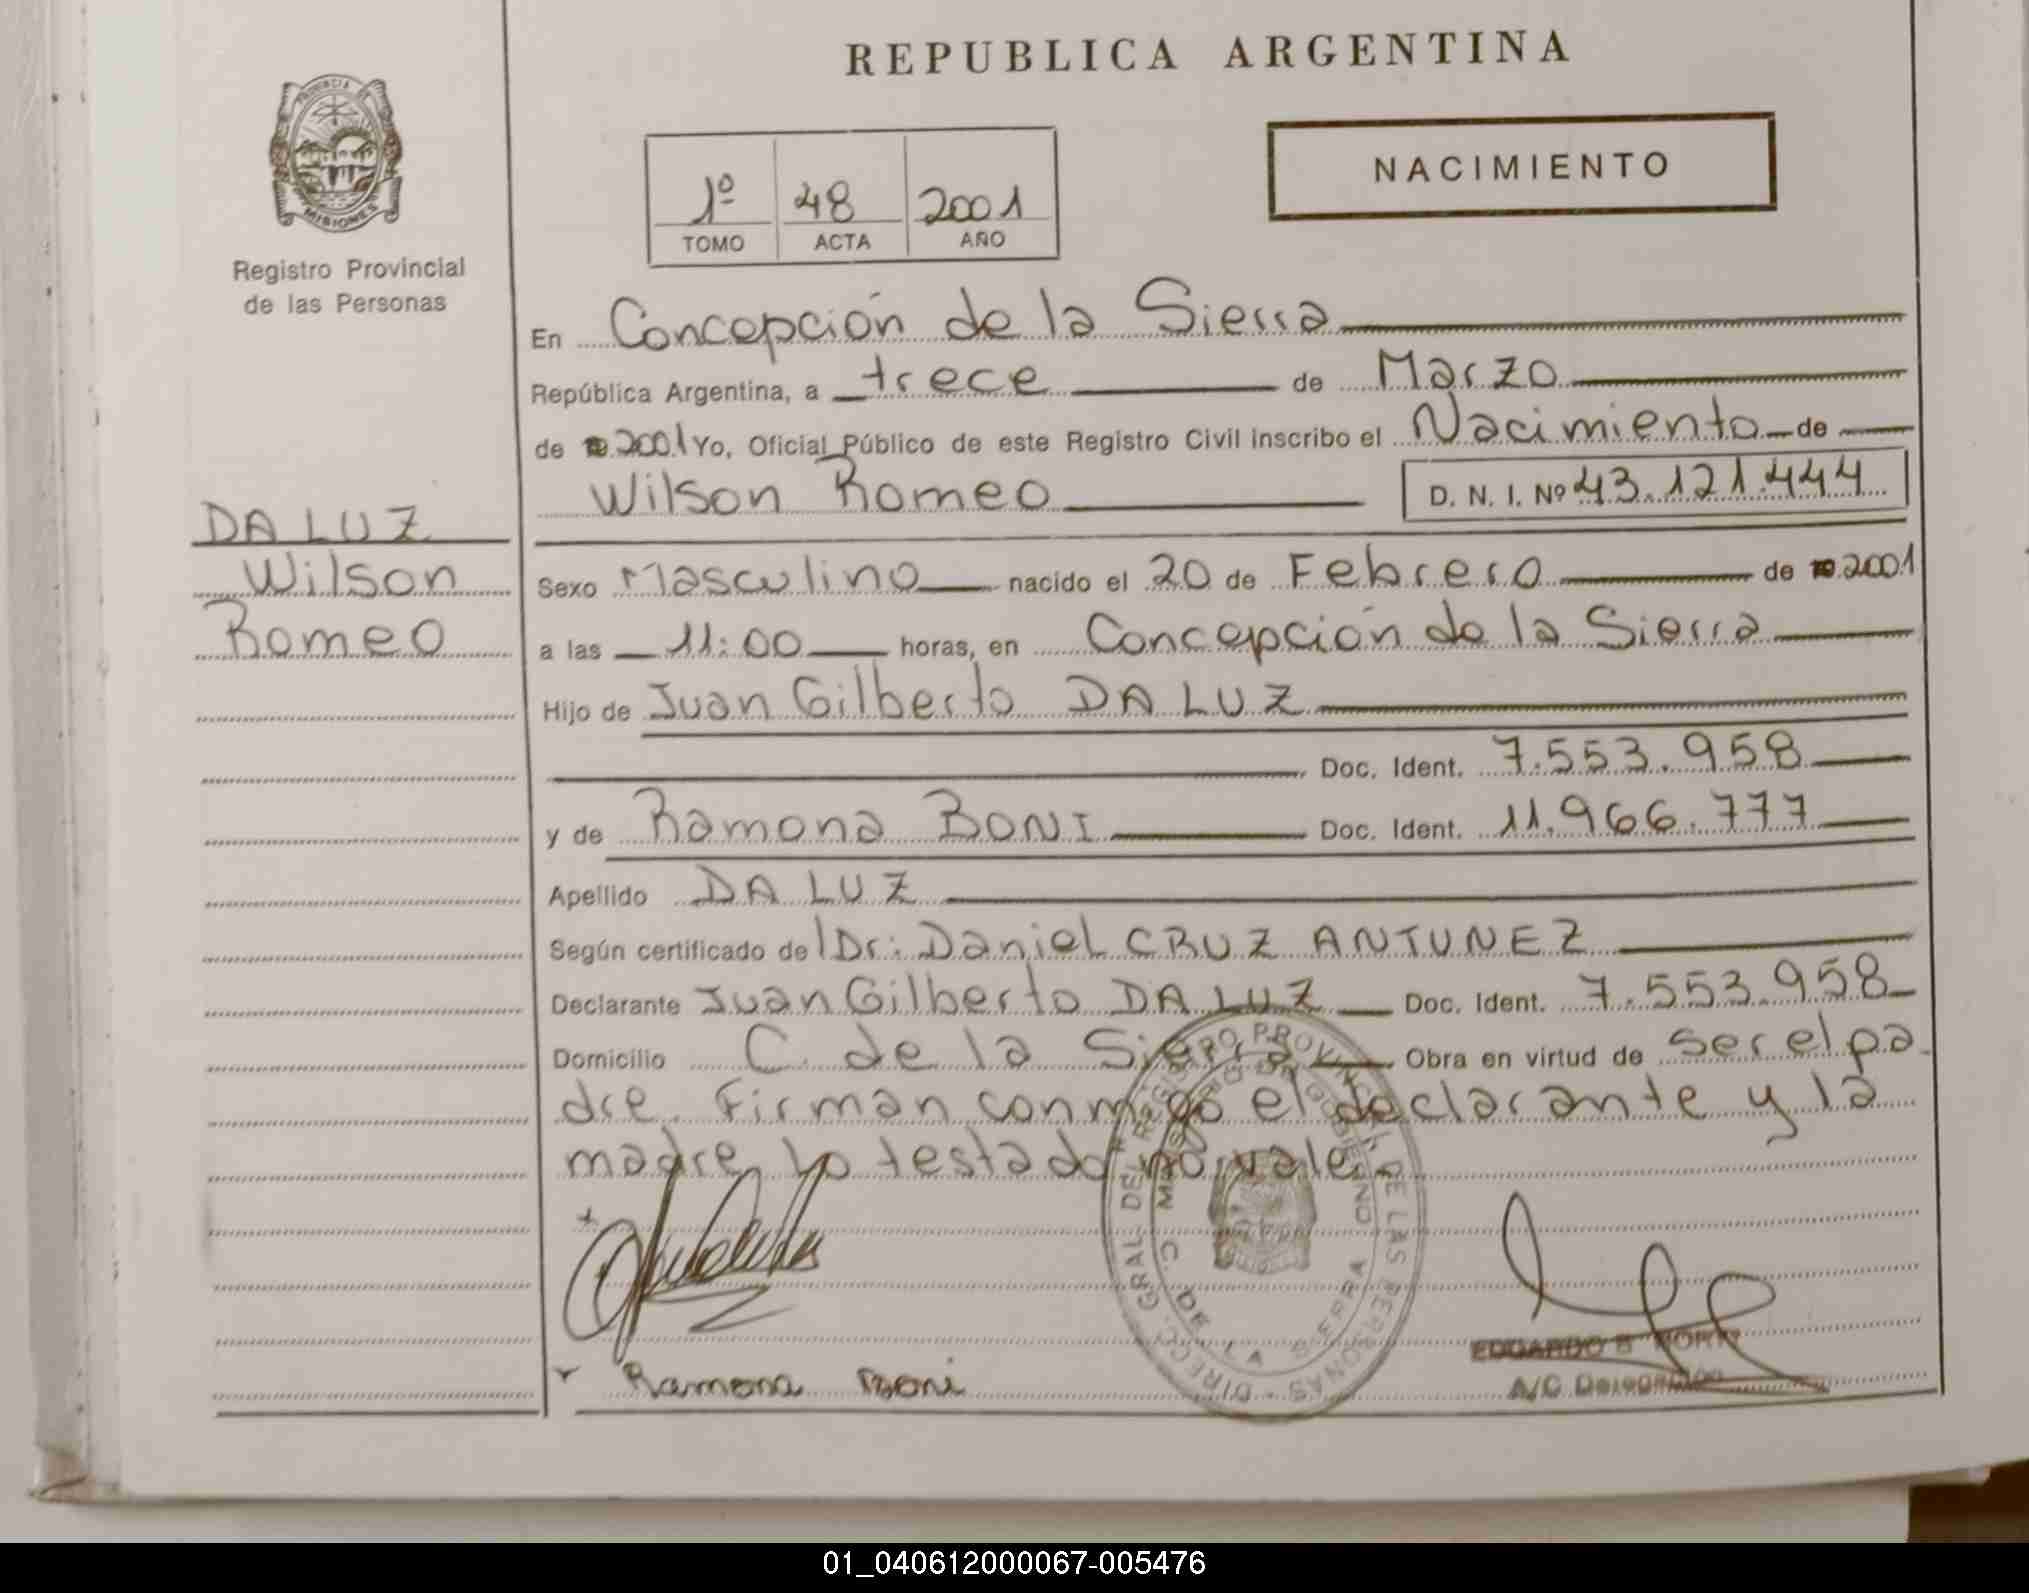 REPUBLICA ARGENTINA
PROVINCIA DE
MISIONES
Registro Provincial
de las Personas
NACIMIENTO
1º 48 2001
TOMO ACTA AÑO
En Concepción de la Sierra
República Argentina, a trece de Marzo
de 2001 Yo, Oficial Público de este Registro Civil inscribo el Nacimiento de
Wilson Romeo D. N. I. Nº 43.121.444
DA LUZ
Wilson
Romeo
Sexo Masculino nacido el 20 de Febrero de 2001
a las 11:00 horas, en Concepción de la Sierra
Hijo de Juan Gilberto DA LUZ
Doc. Ident. 7.553.958
y de Ramona BONI Doc. Ident. 11.966.777
Apellido DA LUZ
Según certificado de Dr: Daniel CRUZ ANTUNEZ
Declarante Juan Gilberto DA LUZ Doc. Ident. 7.553.958
Domicilio C. de la Sierra Obra en virtud de ser el pa
dre. Firman conmigo el declarante y la
madre, lo testado no vale.
DIRECC. GRAL DEL REGISTRO PROVINCIAL DE LAS PERSONAS
Ramona Boni
EDUARDO B
A/C Delegación
01_040612000067-005476